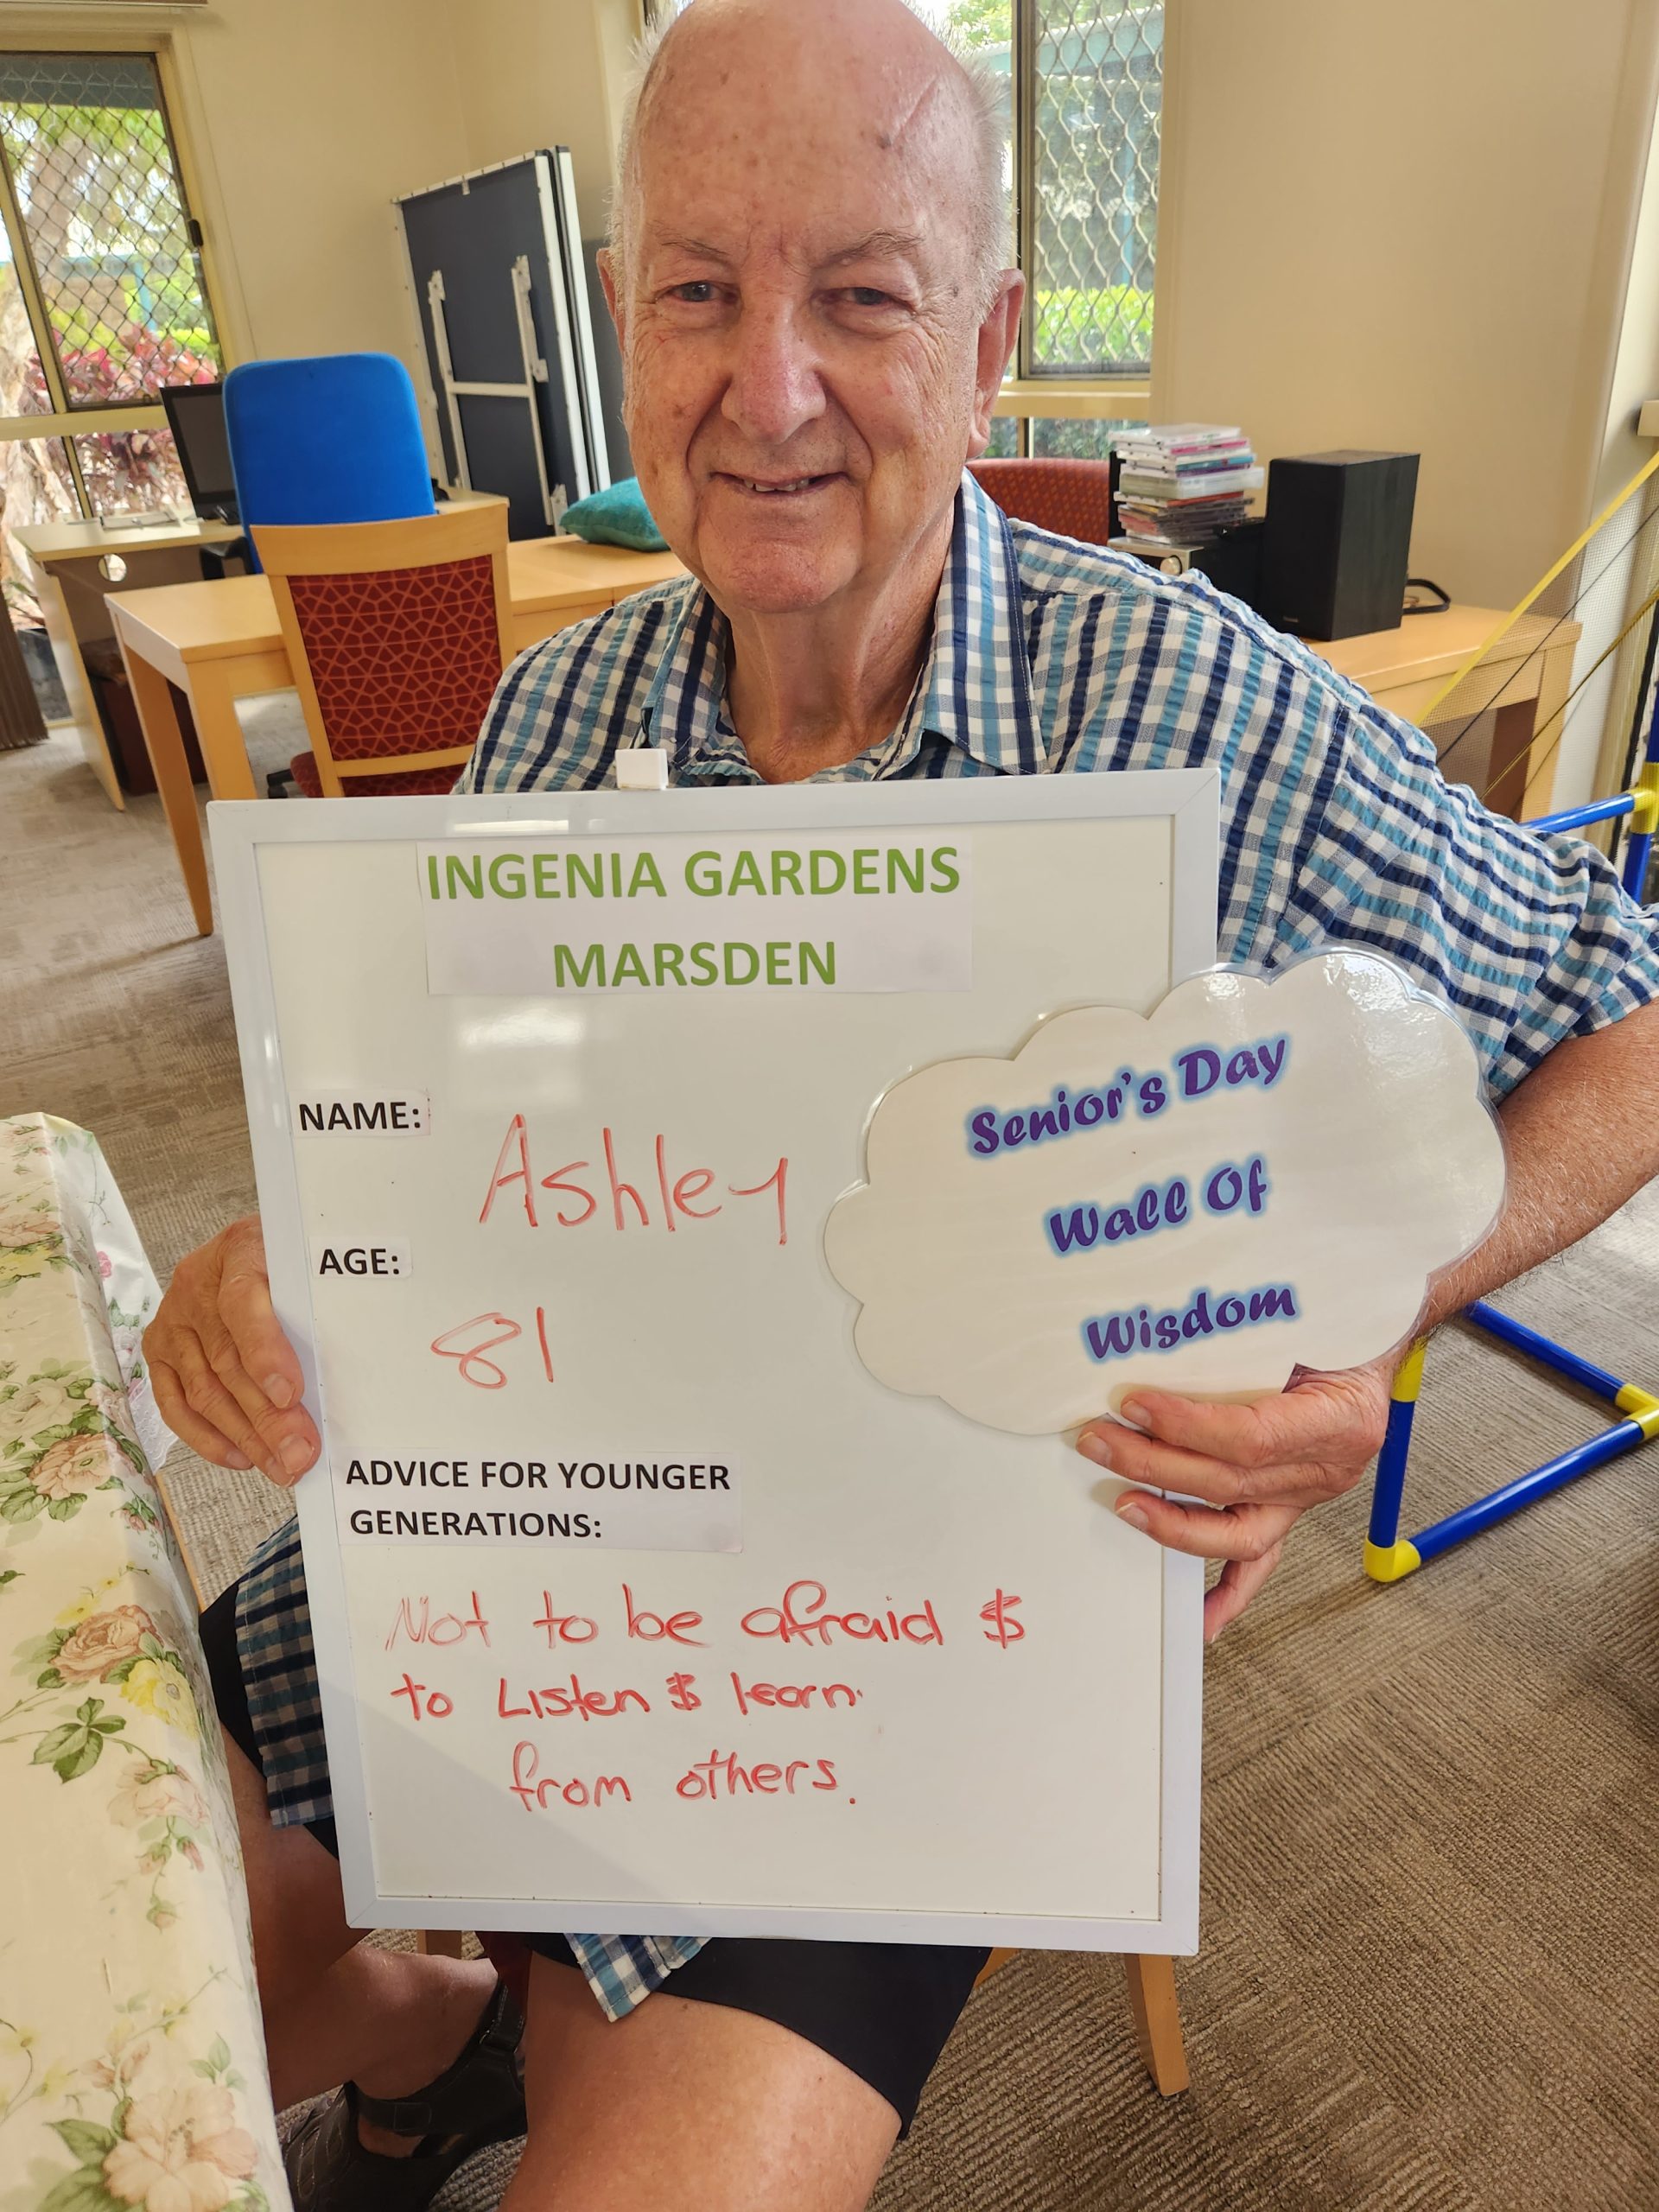 INGENIA GARDENS
MARSDEN
NAME:
Ashley
AGE:
81
Senior's Day
Wall Of
Wisdom
ADVICE FOR YOUNGER
GENERATIONS:
Not to be afraid $
to Listen $ learn
from others.